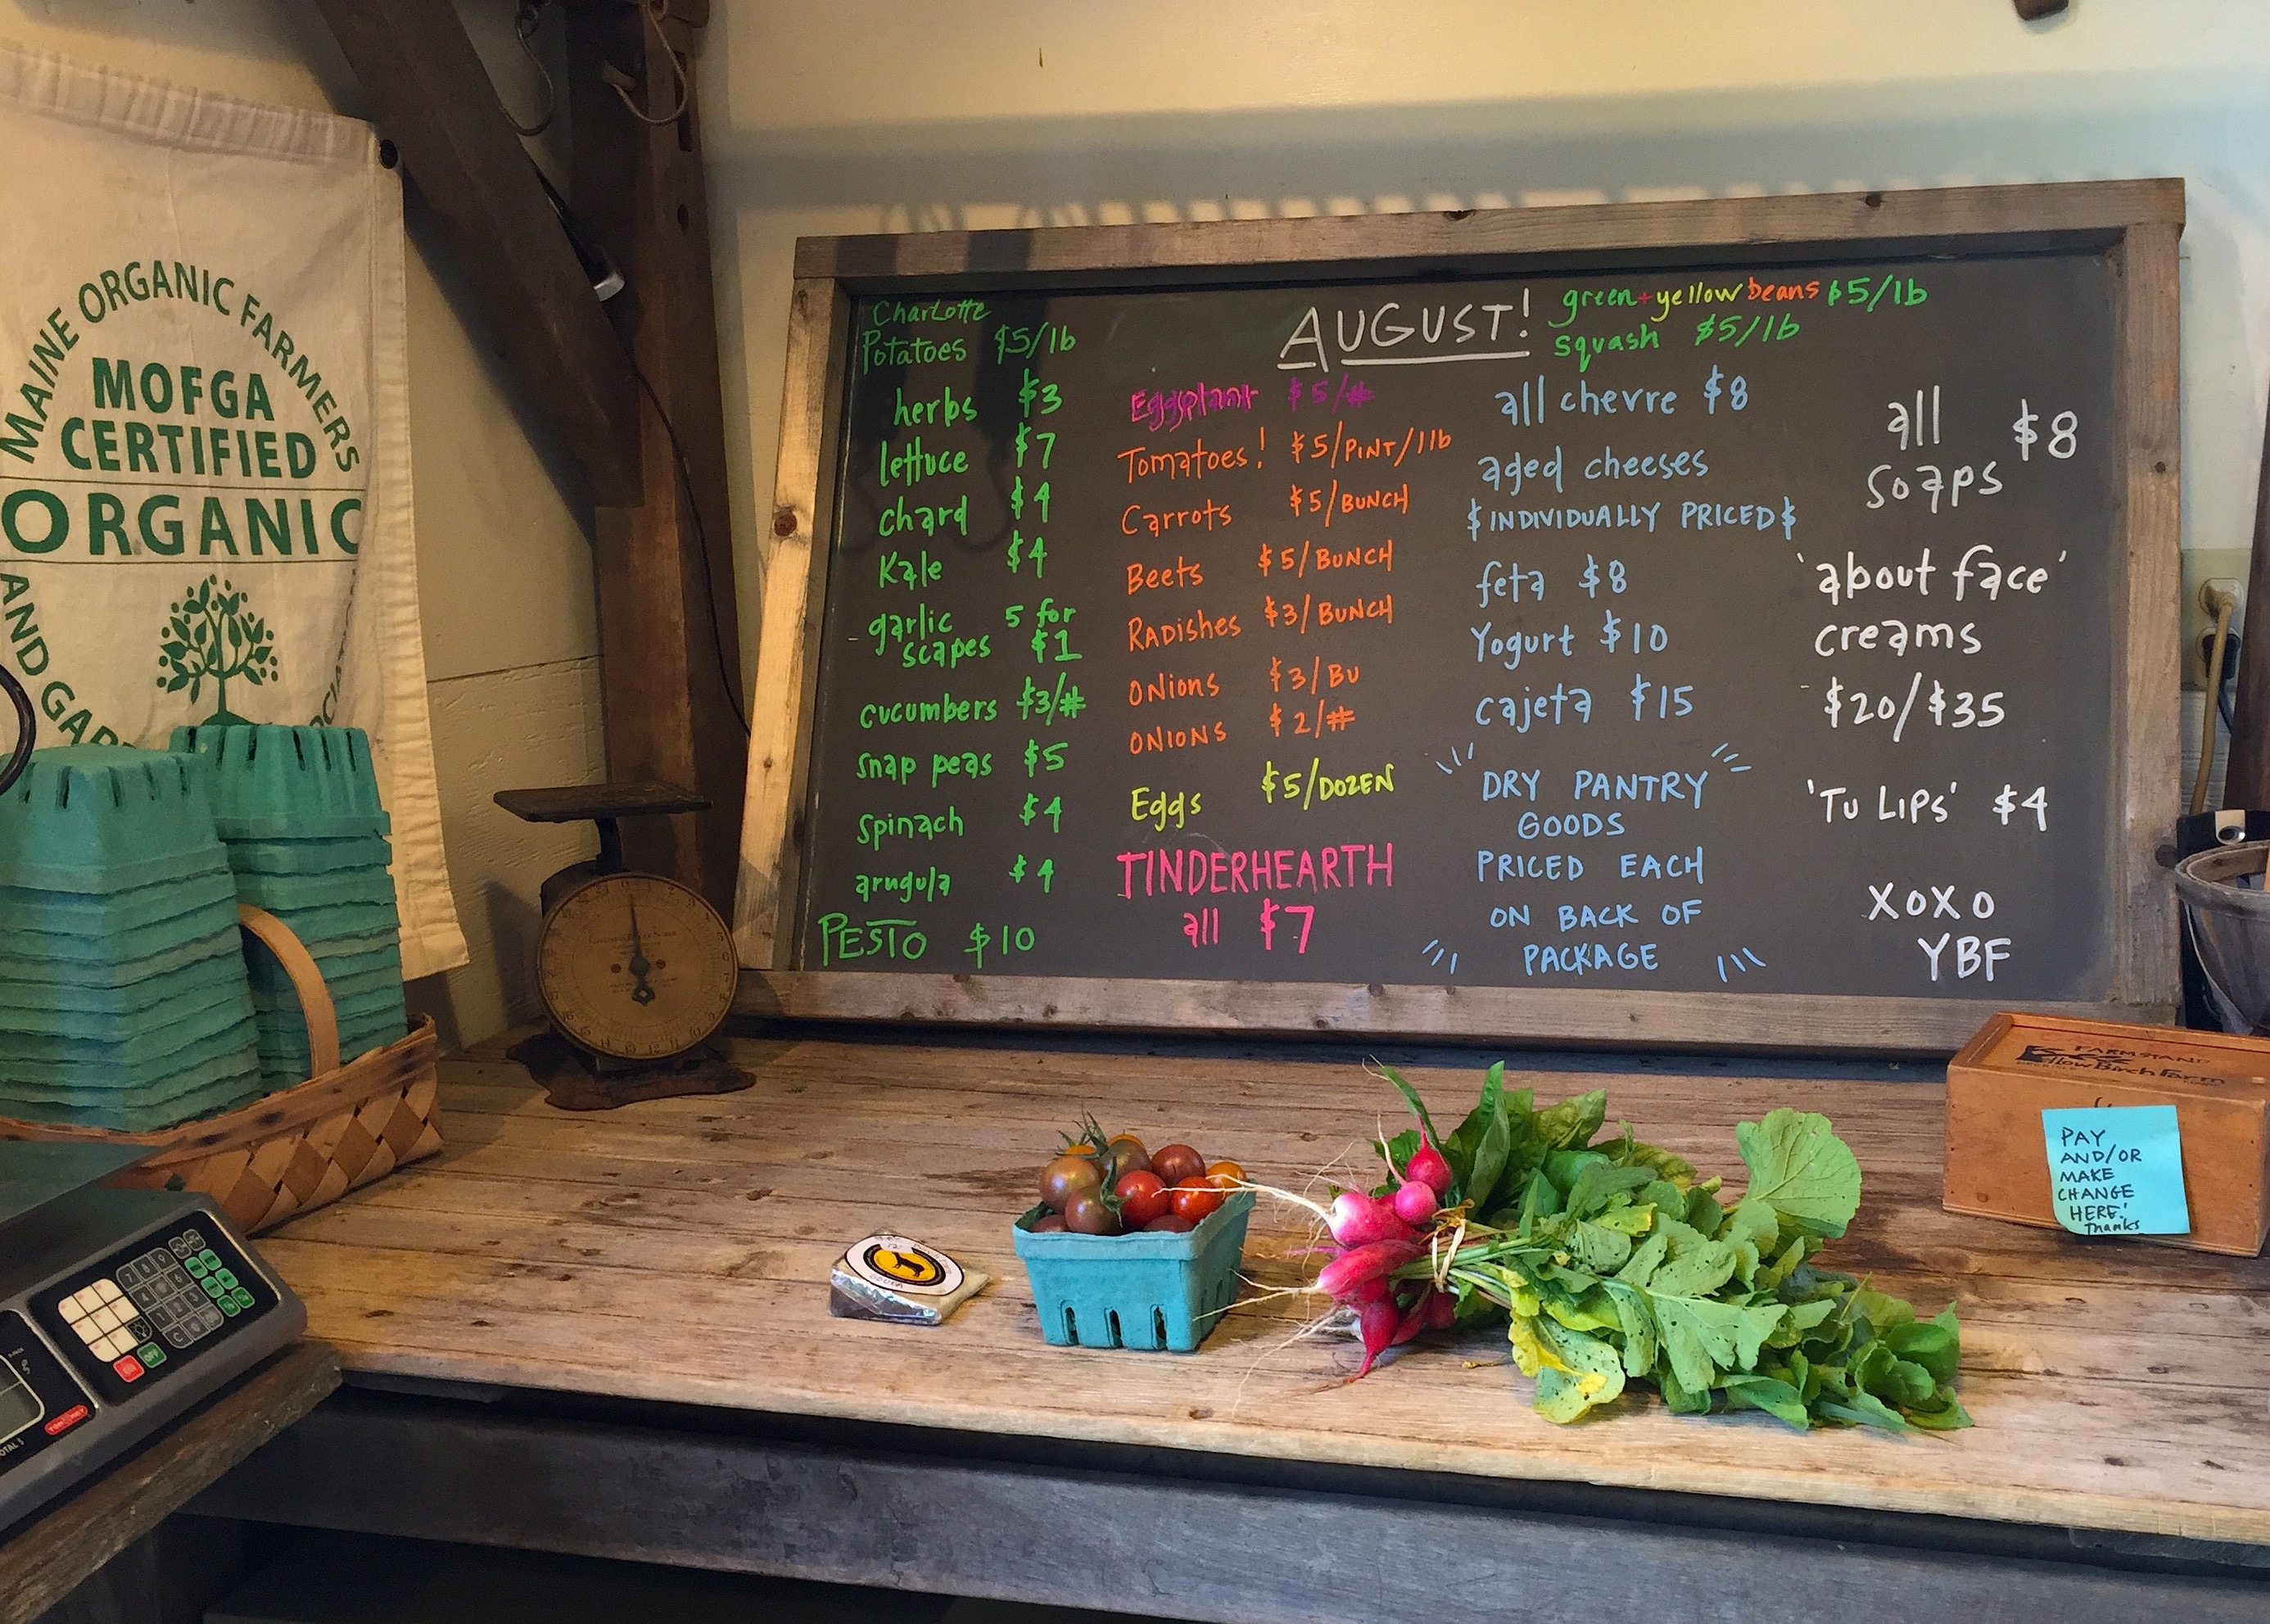 MAINE ORGANIC FARMERS
MOFGA
CERTIFIED
ORGANIC
AND
Charlotte
Potatoes $5/lb
herbs $3
lettuce $7
chard $4
Kale $4
garlic 5 for
scapes $1
cucumbers $3/#
snap peas $5
spinach $4
arugula $4
PESTO $10
AUGUST!
Eggplant $5/#
Tomatoes! $5/PINT/1lb
Carrots $5/BUNCH
Beets $5/BUNCH
RADishes $3/BUNCH
ONions $3/BU
ONIONS $2/#
Eggs $5/DOZEN
TINDERHEARTH
all $7
green + yellow beans $5/lb
squash $5/lb
all chevre $8
aged cheeses
$INDIVIDUALLY PRICED$
feta $8
Yogurt $10
cajeta $15
DRY PANTRY
GOODS
PRICED EACH
ON BACK OF
PACKAGE
all $8
soaps
'about face'
creams
$20/$35
'TU LIPS' $4
XOXO
YBF
FARMSTAND
PAY
AND/OR
MAKE
CHANGE
HERE!
Thanks